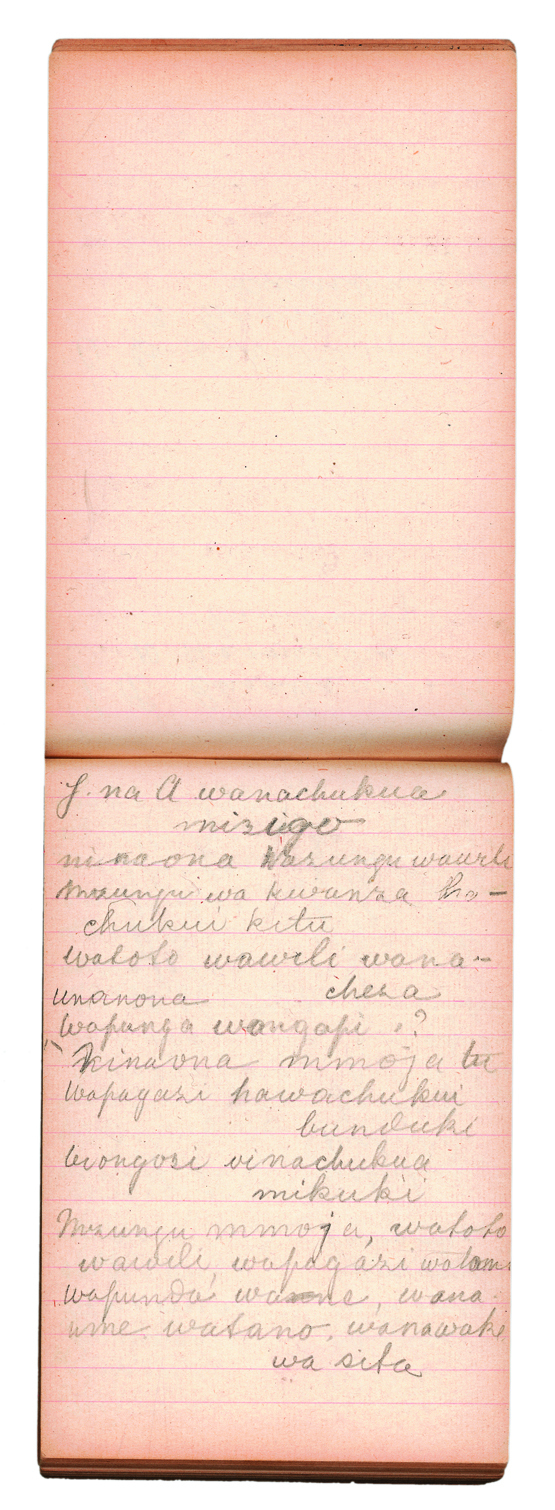 J. na A wanachukua
mizigo
ninaona Wazungu wawili
Mzungu wa kwanza ha-
chukui kitu
watoto wawili wana-
unanona cheza
Wapunga wangapi ?
kinaona mmoja tu
Wapagazi hawachukui
bunduki
Viongozi vinachukua
mikuki
Mzungu mmoja, watoto
wawili, wapagazi
wapunda wanne, wana-
ume watano, wanawake
wa sita